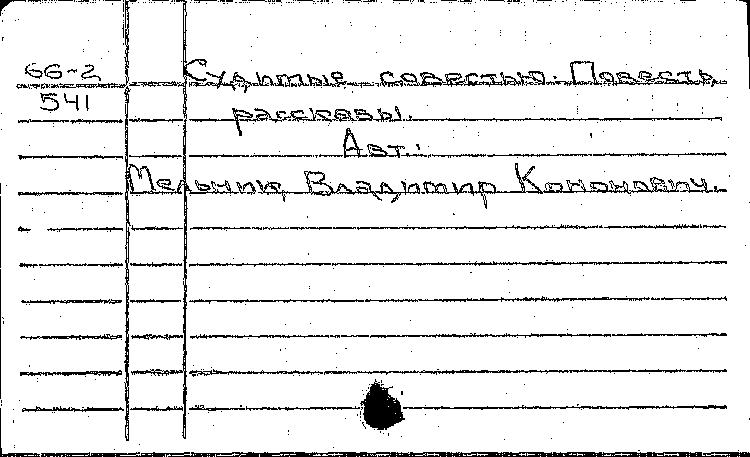 66-2 Судимые совестью. Повесть,
541 рассказы.
Авт.:
Мельник, Владимир Кононович.